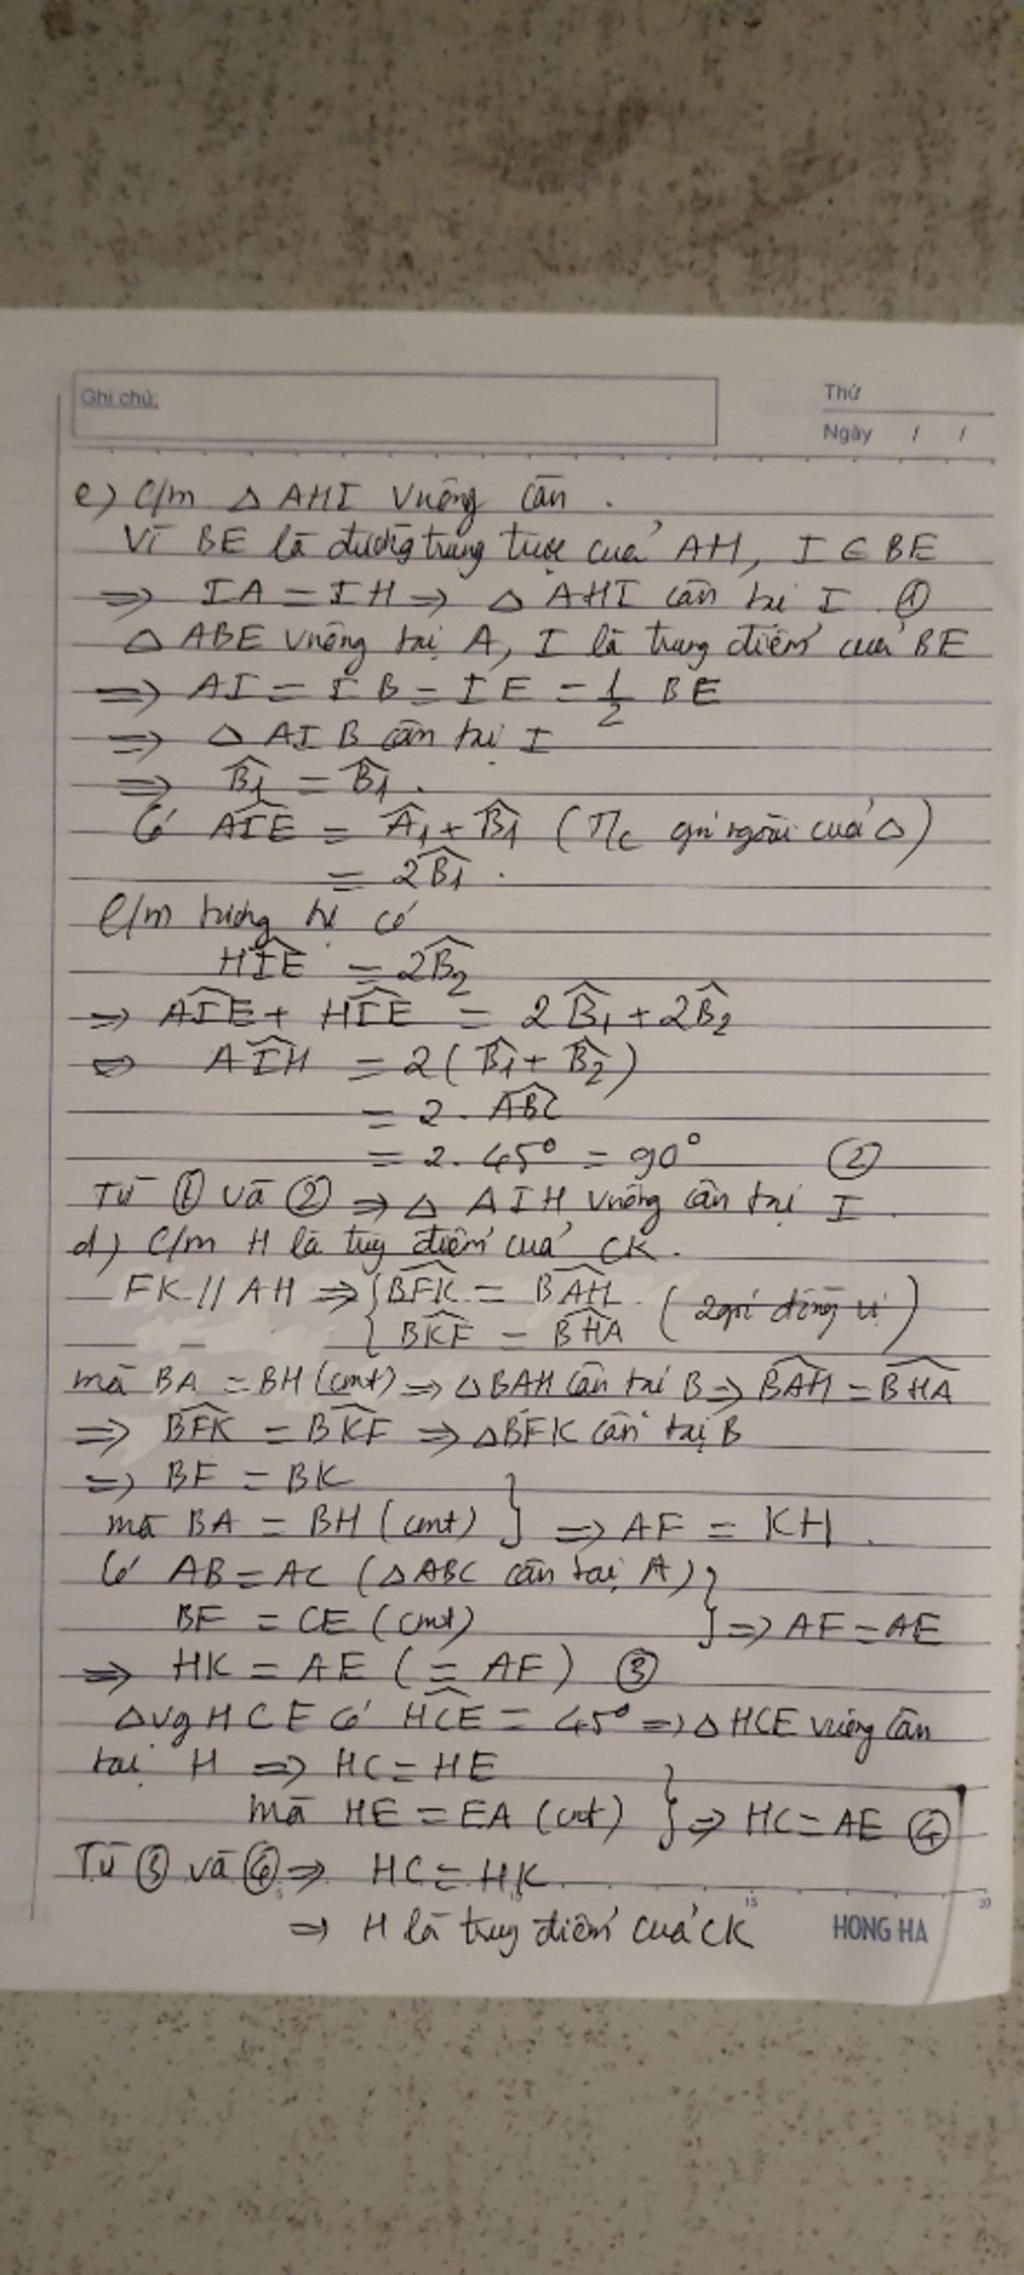 Ghi chú:
Thứ
Ngày / /
e) C/m △ AHI vuông cân.
Vì BE là đường trung trực của AH, I ∈ BE
⇒ IA = IH ⇒ △ AHI cân tại I ①
△ ABE vuông tại A, I là trung điểm của BE
⇒ AI = IB = IE = 1/2 BE
⇒ △ AIB cân tại I
⇒ B̂₁ = B̂₁.
Có AIE^ = Â₁ + B̂₁ (T/c góc ngoài của △)
= 2B̂₁.
C/m tương tự có
HIE^ = 2B̂₂
⇒ AIE^ + HIE^ = 2B̂₁ + 2B̂₂
⇔ AIH^ = 2(B̂₁ + B̂₂)
= 2. ABC^
= 2. 45° = 90° ②
Từ ① và ② ⇒ △ AIH vuông cân tại I.
d) C/m H là trung điểm của CK.
FK // AH ⇒ { BFK^ = BAH^
{ BKF^ = BHA^ (2 góc đồng vị)
mà BA = BH (cmt) ⇒ △BAH cân tại B ⇒ BAH^ = BHA^
⇒ BFK^ = BKF^ ⇒ △BFK cân tại B
⇒ BF = BK
mà BA = BH (cmt) } ⇒ AF = KH.
Có AB = AC (△ABC cân tại A)
BF = CE (cmt) } ⇒ AF = AE
⇒ HK = AE (= AF) ③
△vg HCE có HCE^ = 45° ⇒ △HCE vuông cân
tại H ⇒ HC = HE
mà HE = EA (cmt) } ⇒ HC = AE ④
Từ ③ và ④ ⇒ HC = HK
15 20
⇒ H là trung điểm của CK
HONG HA